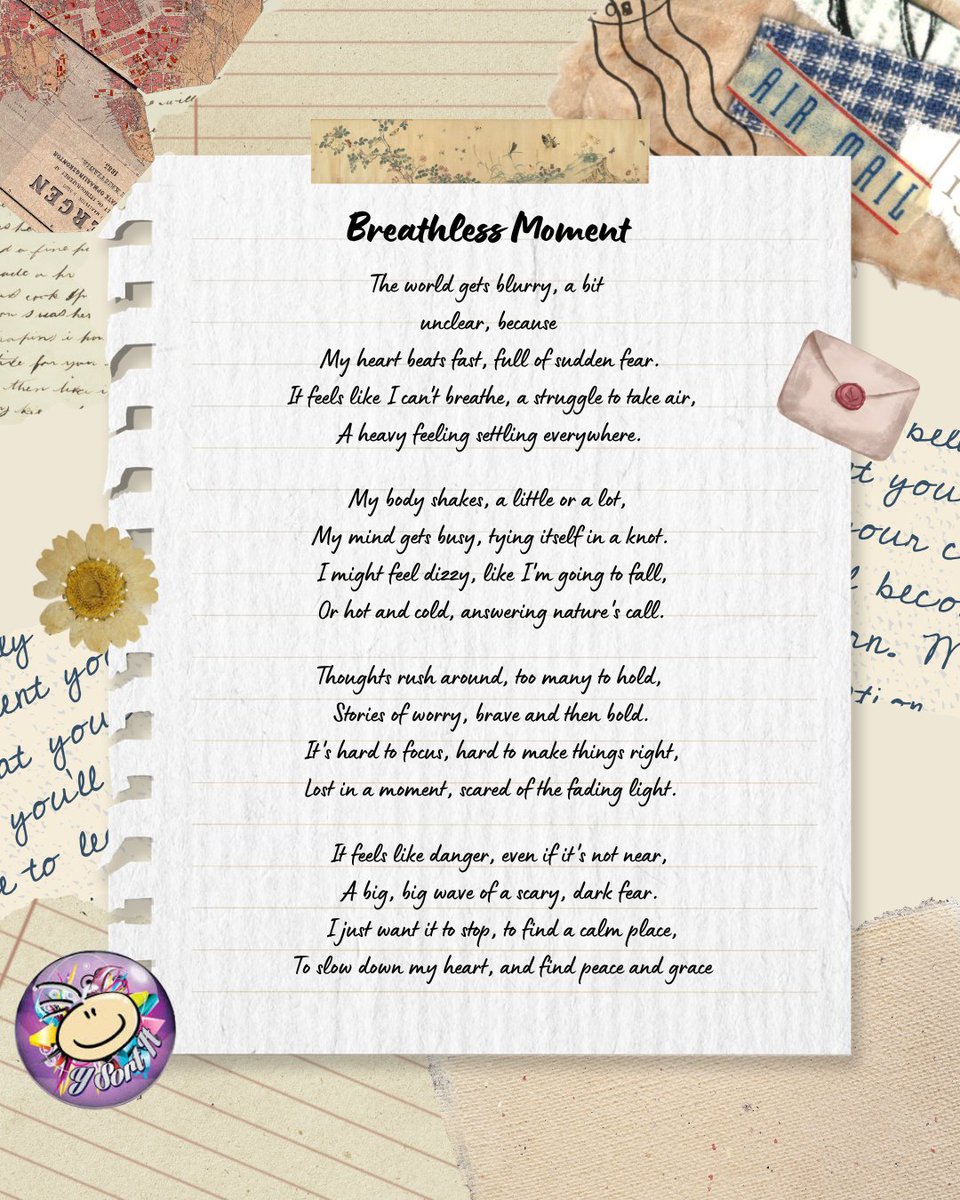 AIR MAIL
RGEN
Breathless Moment
The world gets blurry, a bit
unclear, because
My heart beats fast, full of sudden fear.
It feels like I can't breathe, a struggle to take air,
A heavy feeling settling everywhere.
My body shakes, a little or a lot,
My mind gets busy, tying itself in a knot.
I might feel dizzy, like I'm going to fall,
Or hot and cold, answering nature's call.
Thoughts rush around, too many to hold,
Stories of worry, brave and then bold.
It's hard to focus, hard to make things right,
Lost in a moment, scared of the fading light.
It feels like danger, even if it's not near,
A big, big wave of a scary, dark fear.
I just want it to stop, to find a calm place,
To slow down my heart, and find peace and grace
you
your c
becо
rn. W
you
at you
you'll
to le
Y Sort It